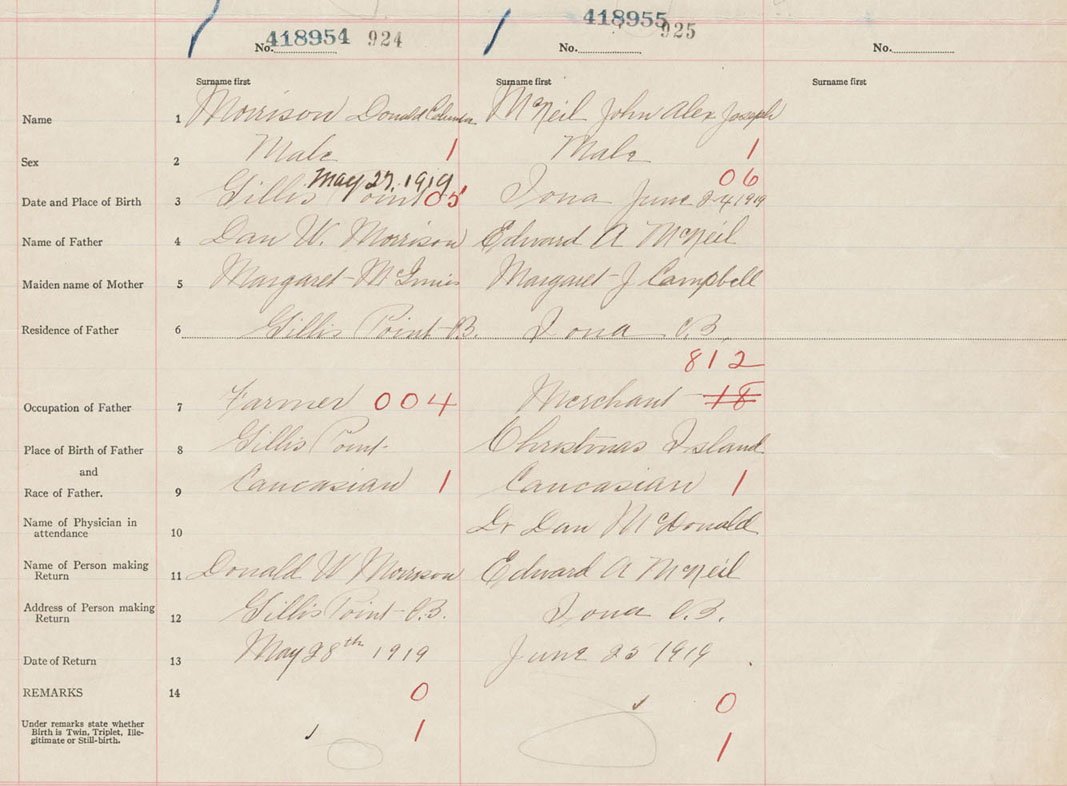 418954 924 418955 925
No. No. No.
Surname first Surname first Surname first
Name 1 Morrison Donald McNeil John Alex Joseph
Sex 2 Male 1 Male 1
May 27, 1919 06
Date and Place of Birth 3 Gillis Point 05 Iona June 24 1919
Name of Father 4 Dan W. Morrison Edward A McNeil
Maiden name of Mother 5 Margaret McInnis Margaret J Campbell
Residence of Father 6 Gillis Point C.B. Iona C.B.
812
Occupation of Father 7 Farmer 004 Merchant 18
Place of Birth of Father 8 Gillis Point Christmas Island
and
Race of Father. 9 Caucasian 1 Caucasian 1
Name of Physician in
attendance 10 Dr Dan McDonald
Name of Person making
Return 11 Donald W Morrison Edward A McNeil
Address of Person making
Return 12 Gillis Point C.B. Iona C.B.
Date of Return 13 May 28th 1919 June 25 1919
REMARKS 14 0 0
Under remarks state whether
Birth is Twin, Triplet, Ille-
gitimate or Still-birth. 1 1